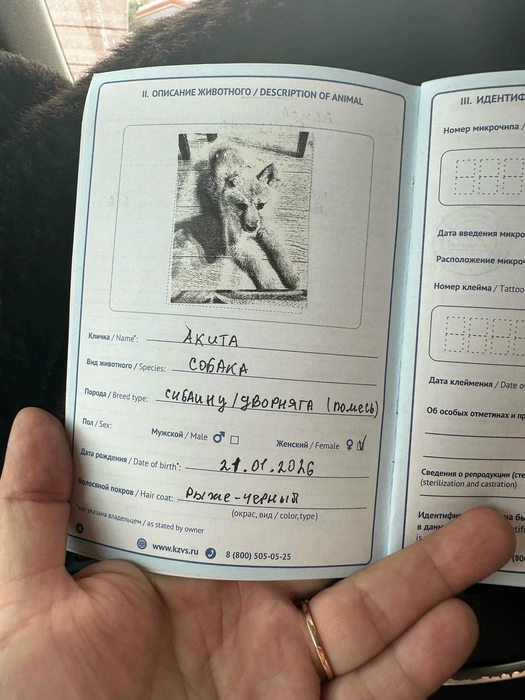 II. ОПИСАНИЕ ЖИВОТНОГО / DESCRIPTION OF ANIMAL
Кличка / Name*: АКИТА
Вид животного / Species: СОБАКА
Порода / Breed type: СИБАИНУ / ДВОРНЯГА (помесь)
Пол / Sex: Мужской / Male ♂ ☐ Женский / Female ♀ ☑
Дата рождения / Date of birth*: 21.01.2026
Волосяной покров / Hair coat: РЫЖЕ-ЧЕРНЫЙ
(окрас, вид / color, type)
*как указана владельцем / as stated by owner
www.kzvs.ru 8 (800) 505-05-25
III. ИДЕНТИФ
Номер микрочипа /
Дата введения микро
Расположение микроч
Номер клейма / Tattoo
Дата клеймения / Date o
Об особых отметинах и пр
Сведения о репродукции (сте
(sterilization and castration)
Идентифи
в данн